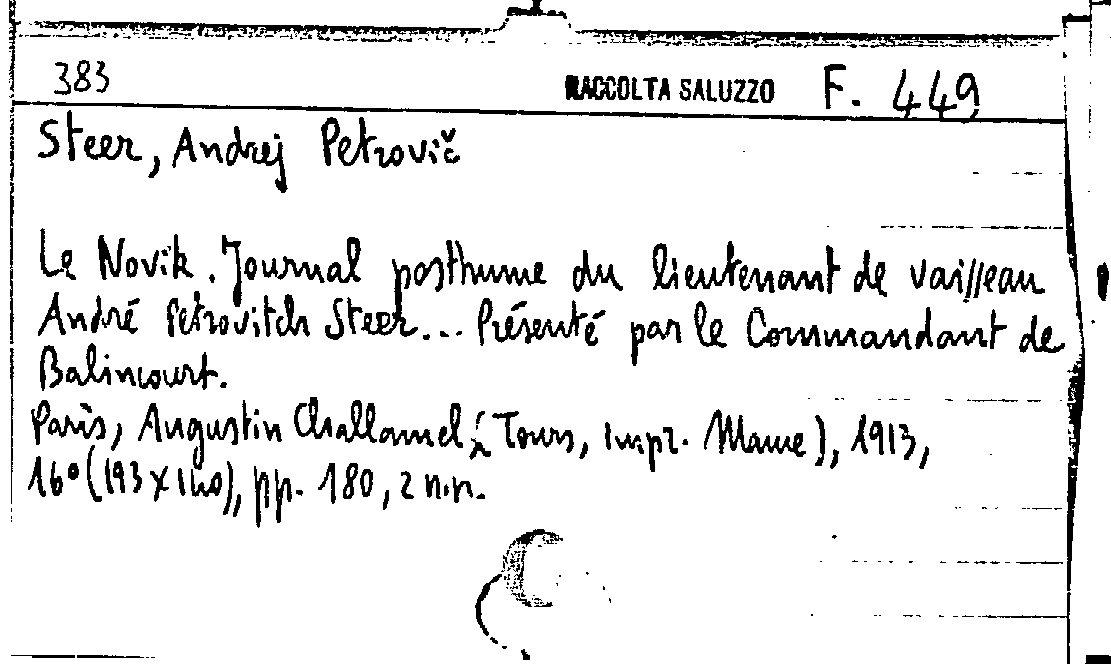 383 RACCOLTA SALUZZO F. 449
Steer, Andrej Petrovič
Le Novik. Journal posthume du lieutenant de vaisseau
André Petrovitch Steer... Présenté par le Commandant de
Balincourt.
Paris, Augustin Challamel (Tours, impr. Mame), 1913,
16° (193 x 140), pp. 180, 2 n.n.